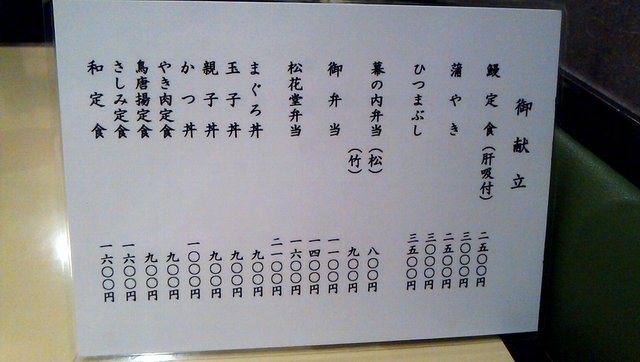 御献立
鰻定食(肝吸付) 二五〇〇円
三〇〇〇円
蒲やき 二五〇〇円
三〇〇〇円
ひつまぶし 三五〇〇円
幕の内弁当(松) 八〇〇円
(竹) 九〇〇円
御弁当 一一〇〇円
一四〇〇円
松花堂弁当 一六〇〇円
二一〇〇円
まぐろ丼 九〇〇円
玉子丼 九〇〇円
親子丼 九〇〇円
かつ丼 一〇〇〇円
やき肉定食 九〇〇円
鳥唐揚定食 九〇〇円
さしみ定食 一六〇〇円
和定食 一六〇〇円